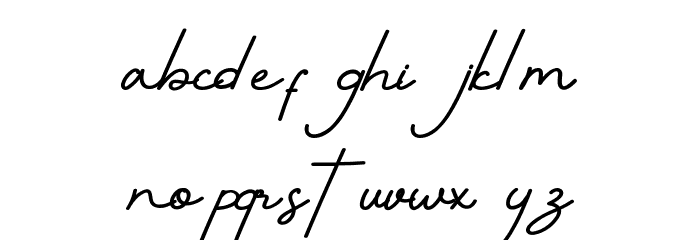 abcdef ghi jklm
nopqrst uvwx yz